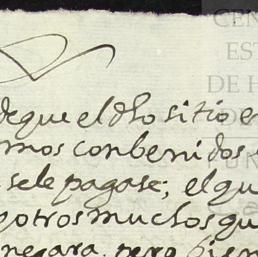 deque el dho sitio e
mos conbenidos
sele pagase; el qu
potros muchos qu
negara, pero bien
CEN
EST
DE H
DE
UN